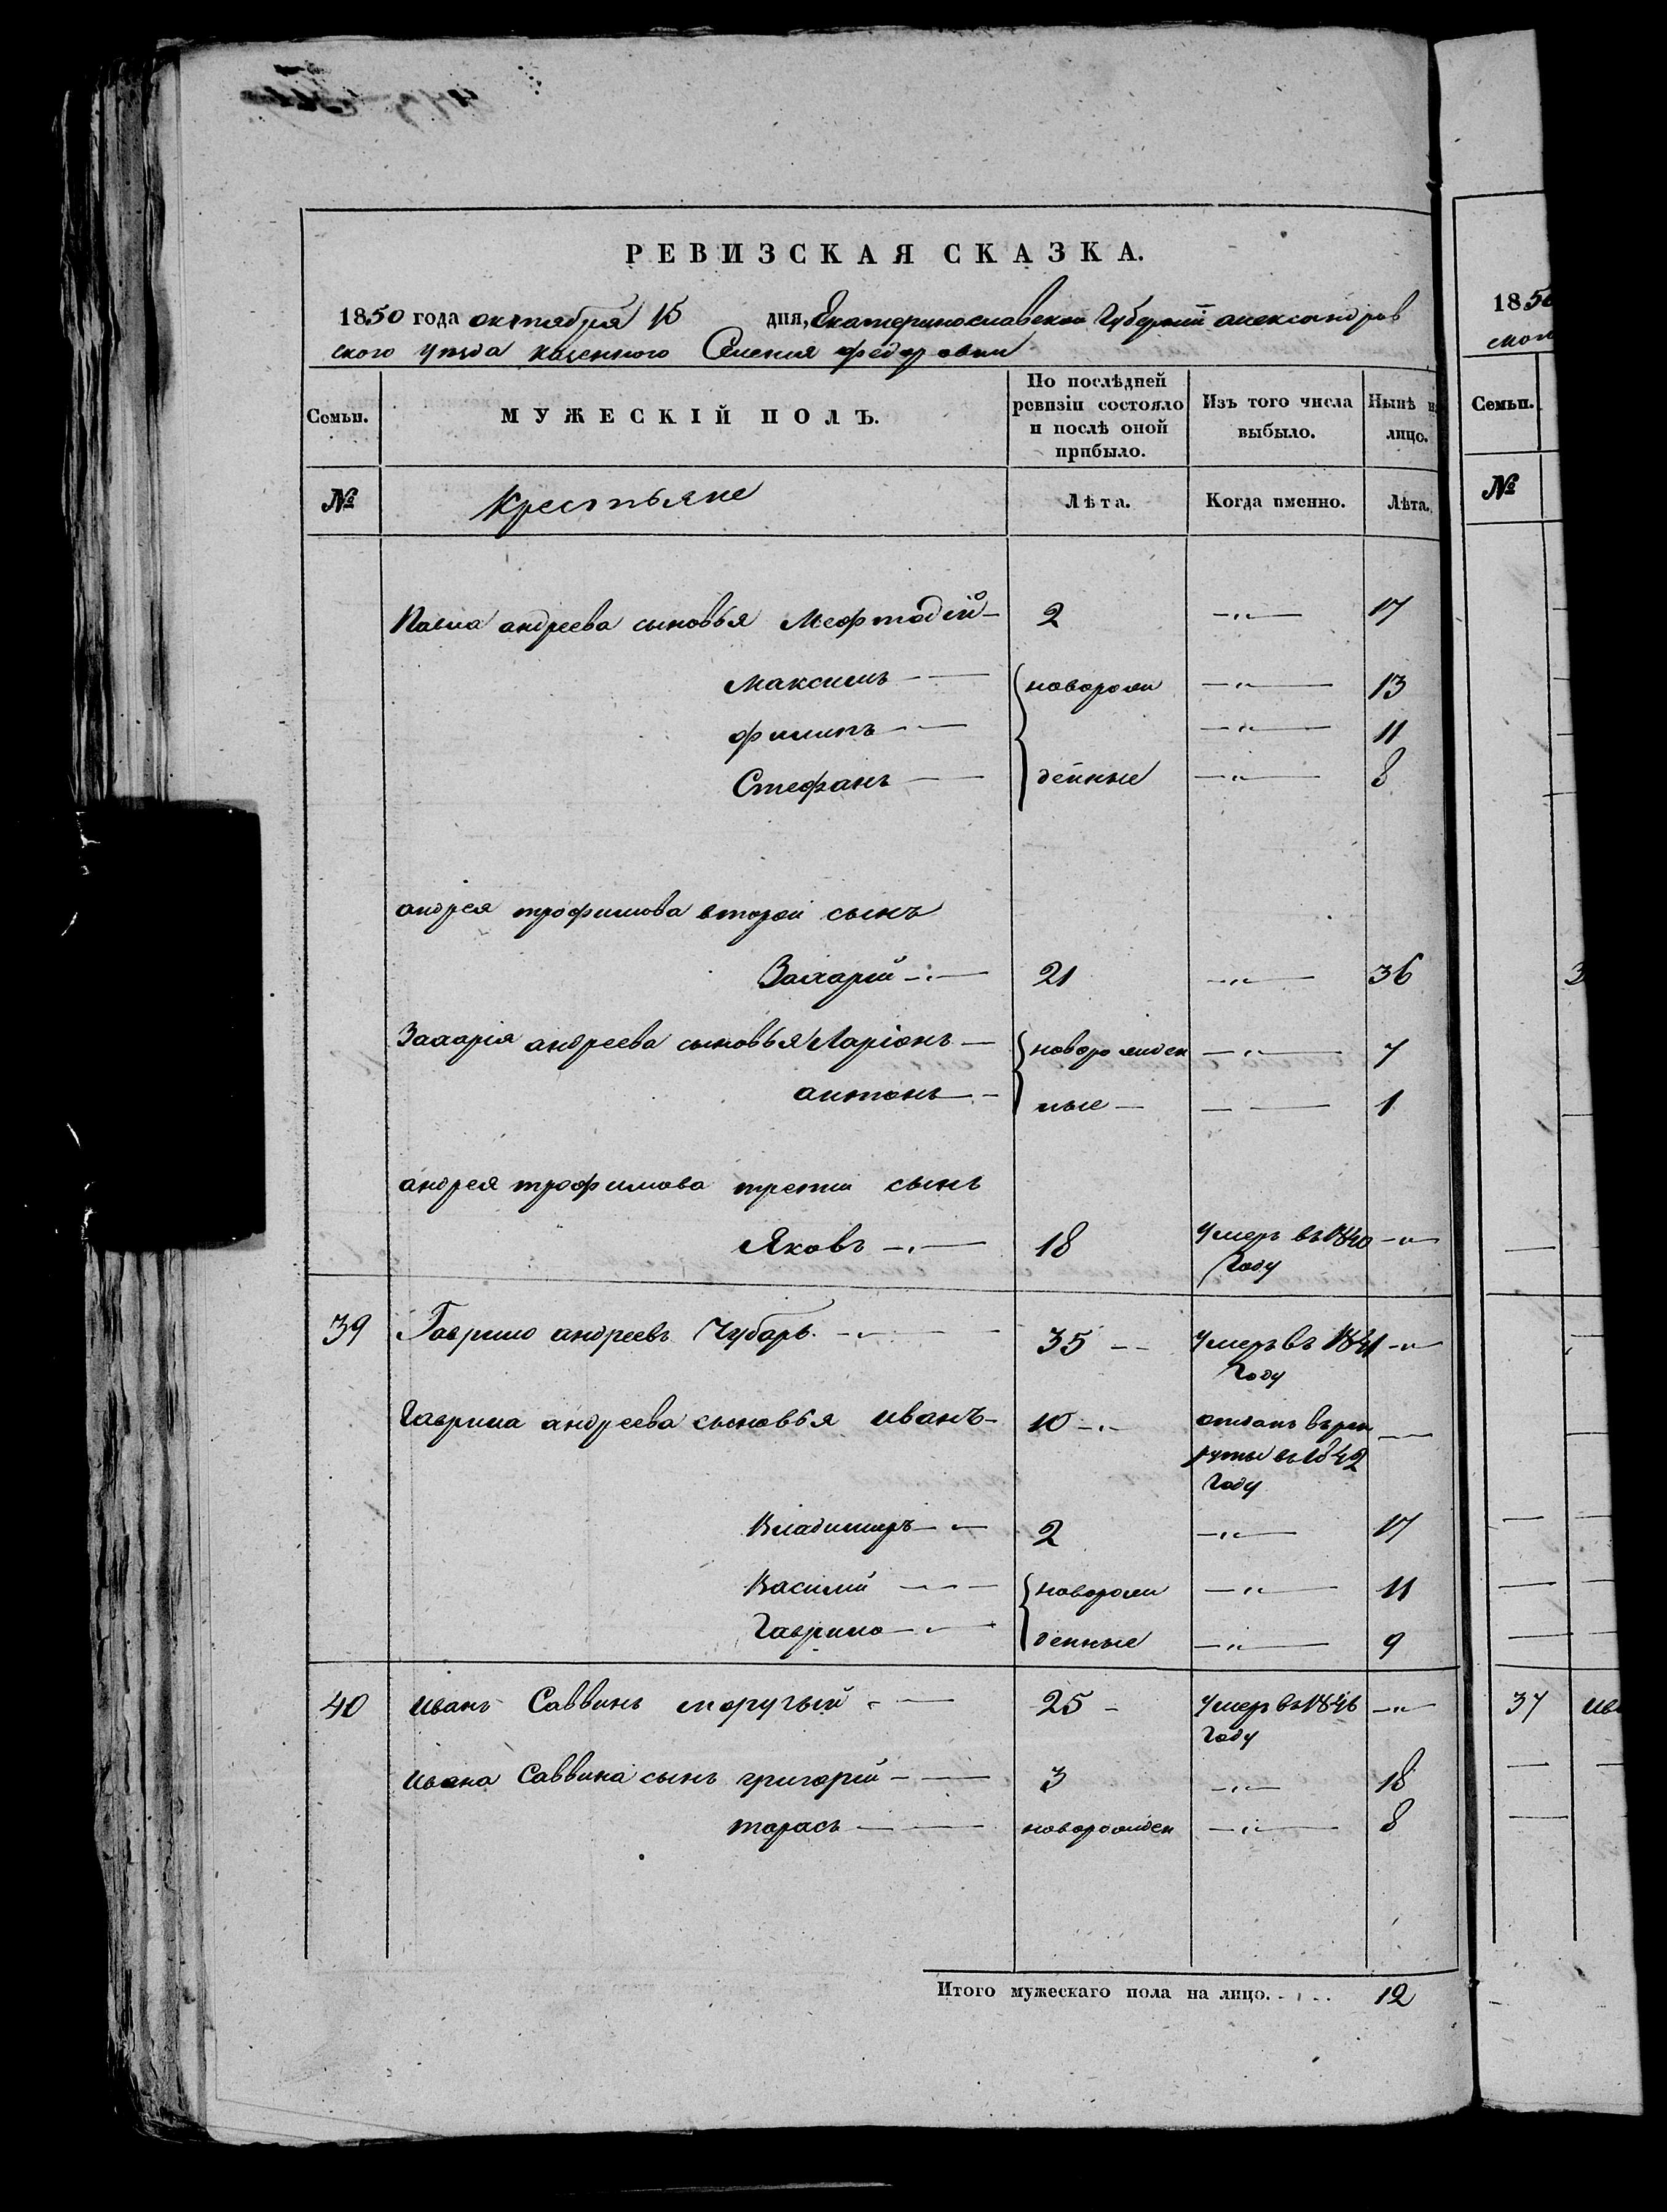 РЕВИЗСКАЯ СКАЗКА.
1850 года октября 15 дня, Екатеринославской Губернии александров
ского уезда казенного Селения федоровки
Семьи.
МУЖЕСКІЙ ПОЛЪ.
По послѣдней ревизіи состояло и послѣ оной прибыло.
Изъ того числа выбыло.
Нынѣ н лицо.
№
Крестьяне
Лѣта.
Когда именно.
Лѣта.
андреева сыновья Мефтодій 2 —"— 17
Максимъ новорож —"— 13
филипъ —"— 11
Стефанъ денные —"— 8
андрея трофимова второй сынъ
Захарій 21 —"— 36
Захарія андреева сыновья Ларіонъ новорожден —"— 7
антонъ ные — — 1
андрея трофимова третій сынъ
Яковъ 18 умеръ въ 1840 —"—
Году
39 Гаврило андреевъ Чубарь 35 умеръ въ 1841 —"—
Году
Гаврила андреева сыновья иванъ 10 отданъ въ рек
руты въ 1842
Году
Владимиръ 2 —"— 17
Василий новорож —"— 11
Гаврило денные —"— 9
40 иванъ Саввинъ 25 умеръ въ 1846 —"—
Году
ивана Саввина сынъ григорій 3 —"— 18
тарасъ новорожден —"— 8
Итого мужескаго пола на лицо. 12
1850
Семьи.
№
37